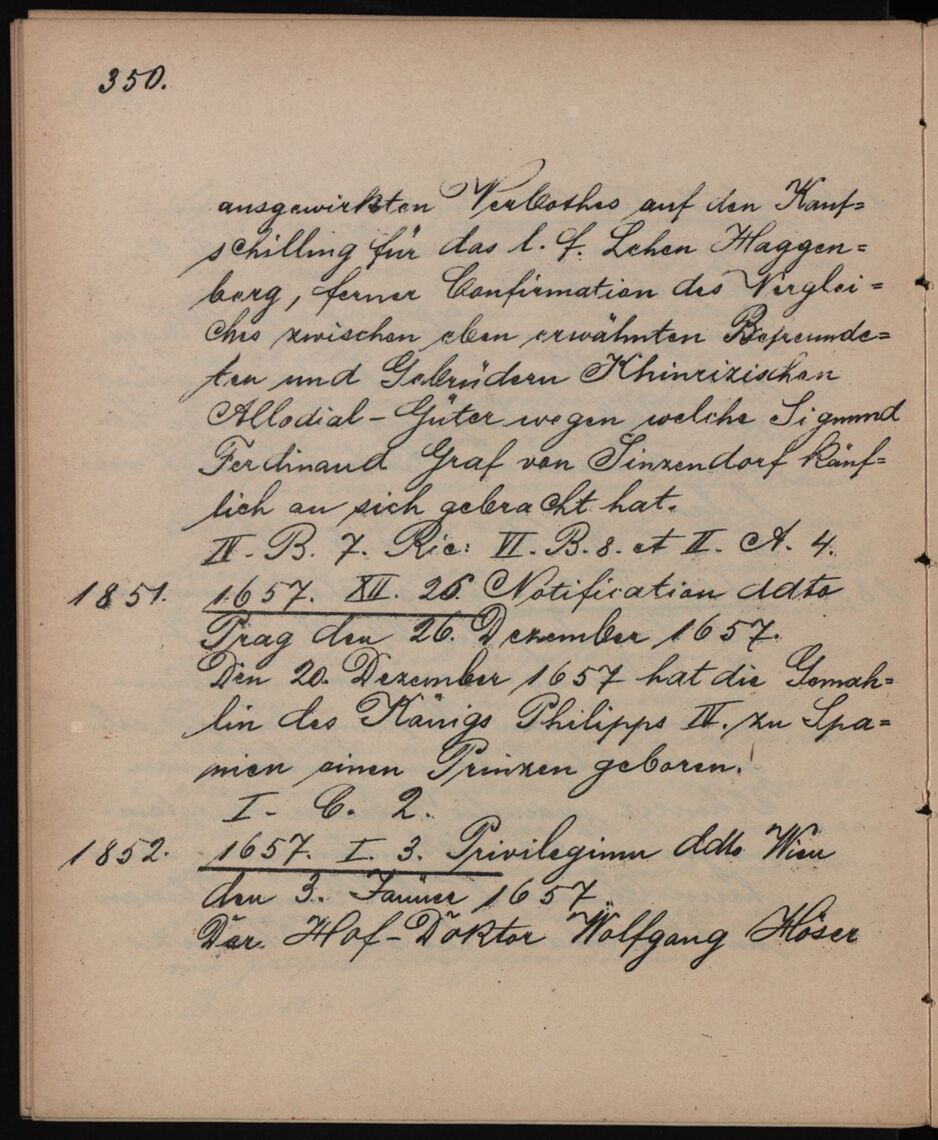 350.
ausgewirkten Verbothes auf den Kauf=
schilling für das l. f. Lehen Haggen=
berg, ferner Confirmation des Verglei=
ches zwischen eben erwähnten Befreunde=
ten und Gebrüdern Khinrizischen
Allodial-Güter wegen welche Sigmund
Ferdinand Graf von Sinzendorf käuf=
lich an sich gebracht hat.
IV. B. 7. Ric: VI. B. 8. et II. A. 4.
1851. 1657. XII. 26. Notification ddto
Prag den 26. Dezember 1657.
Den 20. Dezember 1657 hat die Gemah=
lin des Königs Philipps IV. zu Spa=
nien einen Prinzen geboren.
I. C. 2.
1852. 1657. I. 3. Privilegium ddto Wien
den 3. Jänner 1657
Der Hof-Doktor Wolfgang Höser